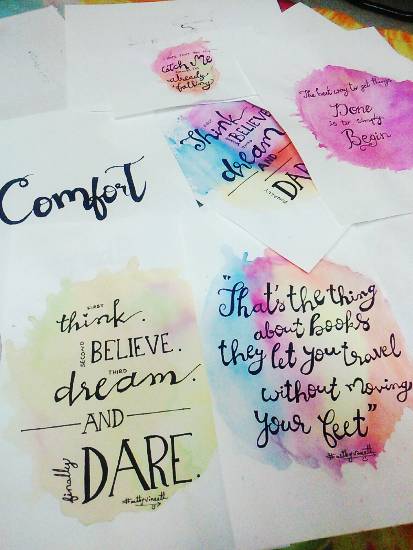 catch Me
I'm
already
falling
The best way to get things
Done
is to simply
Begin
Think
BELIEVE
dream
AND
DAR
Comfort
FIRST
think.
SECOND BELIEVE.
THIRD
dream.
AND
finally DARE.
"That's the thing
about Books
they let you travel
without Moving
your feet"